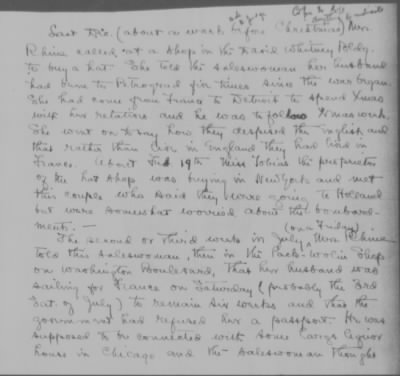 Last Dec. (about a week before Christmas) Mrs.
Rhine called at a shop in the David Whitney Bldg.
to buy a hat. She told the saleswoman her husband
had been to Petrograd five times since the war began.
She had come from France to Detroit to spend Xmas
with her relations and he was to follow Xmas week.
She went on to say how they despised the English and
that rather than live in England they had lived in
France. About Feb 19th Miss Tobias the proprietor
of the hat shop was buying in New York and met
this couple who said they were going to Holland
but were somewhat worried about the bombard-
ments.
(on a Friday)
The second or third week in July, Mrs. Rhine
told this saleswoman, then in the Pack-Wolin Shop
on Washington Boulevard, that her husband was
sailing for France on Saturday (probably the 3rd
Sat. of July) to remain six weeks and that the
government had refused her a passport. He was
supposed to be connected with some large liquor
house in Chicago and the saleswoman thought